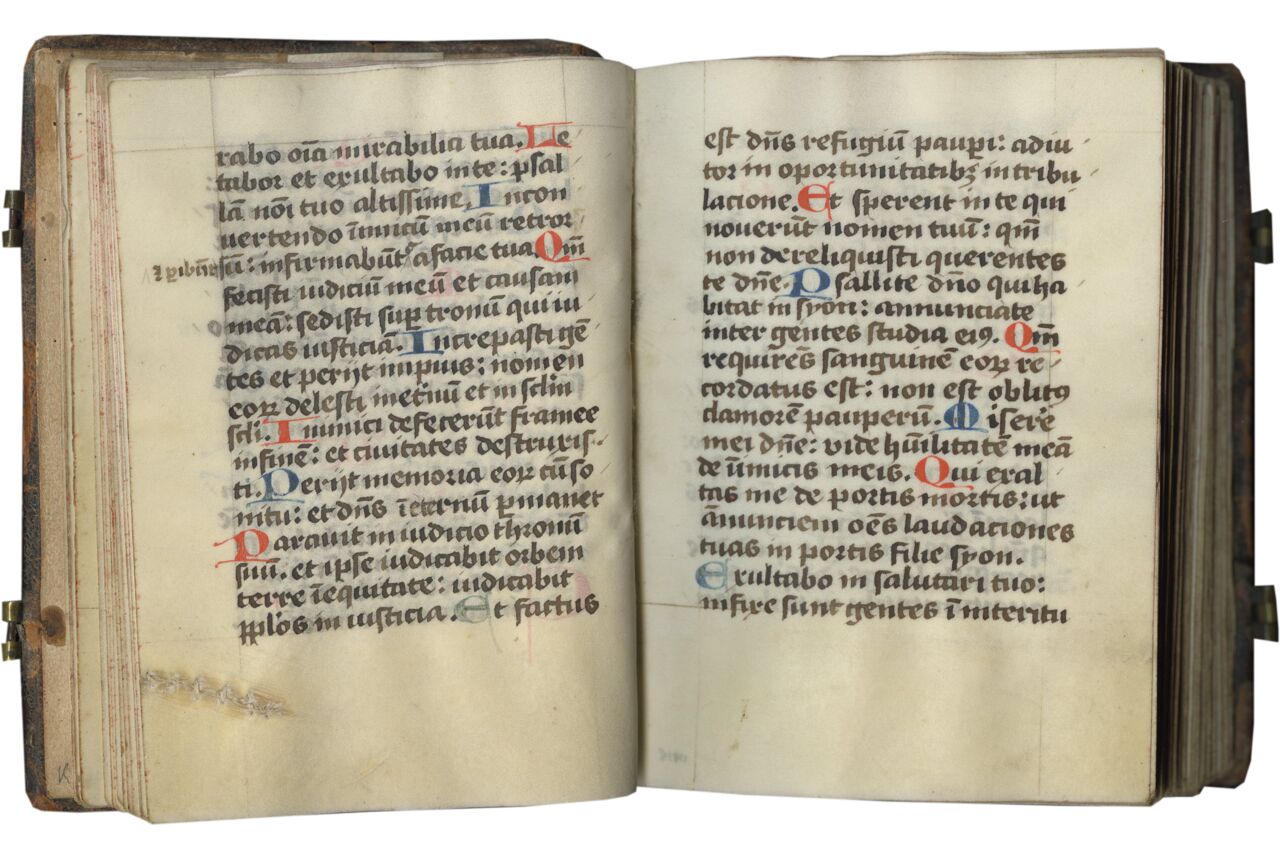 rabo oīa mirabilia tua. Le
tabor et exultabo in te: psal
lā nōi tuo altissime. Incon
uertendo īimicū meū retror
⁊ ꝑibūt
sū: infirmabūtᷣ a facie tua. Qm̄
fecisti iudiciū meū et causam
meā: sedisti suꝑ tronū qui iu
dicas iusticiā. Increpasti gē
tes et perijt impius: nomen
eoꝝ delesti ineternū et in sclm̄
scli. Inimici defecerūt framee
in finē: et ciuitates destruxis-
ti. Perijt memoria eoꝝ cū so
nitu: et dn̄s ī eternū ꝑmanet
Parauit in iudicio thronū
suū. et ipse iudicabit orbem
terre ī equitate: iudicabit
pp̄los in iusticia. Et factus
est dn̄s refugiū pauꝑi: adiu
tor in oportunitatibꝫ in tribu
lacione. Et sperent in te qui
nouerūt nomen tuū: qm̄
non dereliquisti querentes
te dn̄e. Psallite dn̄o qui ha
bitat in syon: annunciate
inter gentes studia eiꝰ. Qm̄
requirēs sanguinē eoꝝ re
cordatus est: non est oblitꝰ
clamorē pauperū. Misere
mei dn̄e: vide hūilitatē meā
de īimicis meis. Qui exal
tas me de portis mortis: ut
ānunciem oēs laudaciones
tuas in portis filie syon.
Exultabo in salutari tuo:
infixe sunt gentes ī interitu